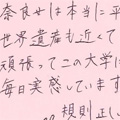 奈良女は本当に平
世界遺産も近くて
頑張ってこの大学に
毎日実感しています
規則正し